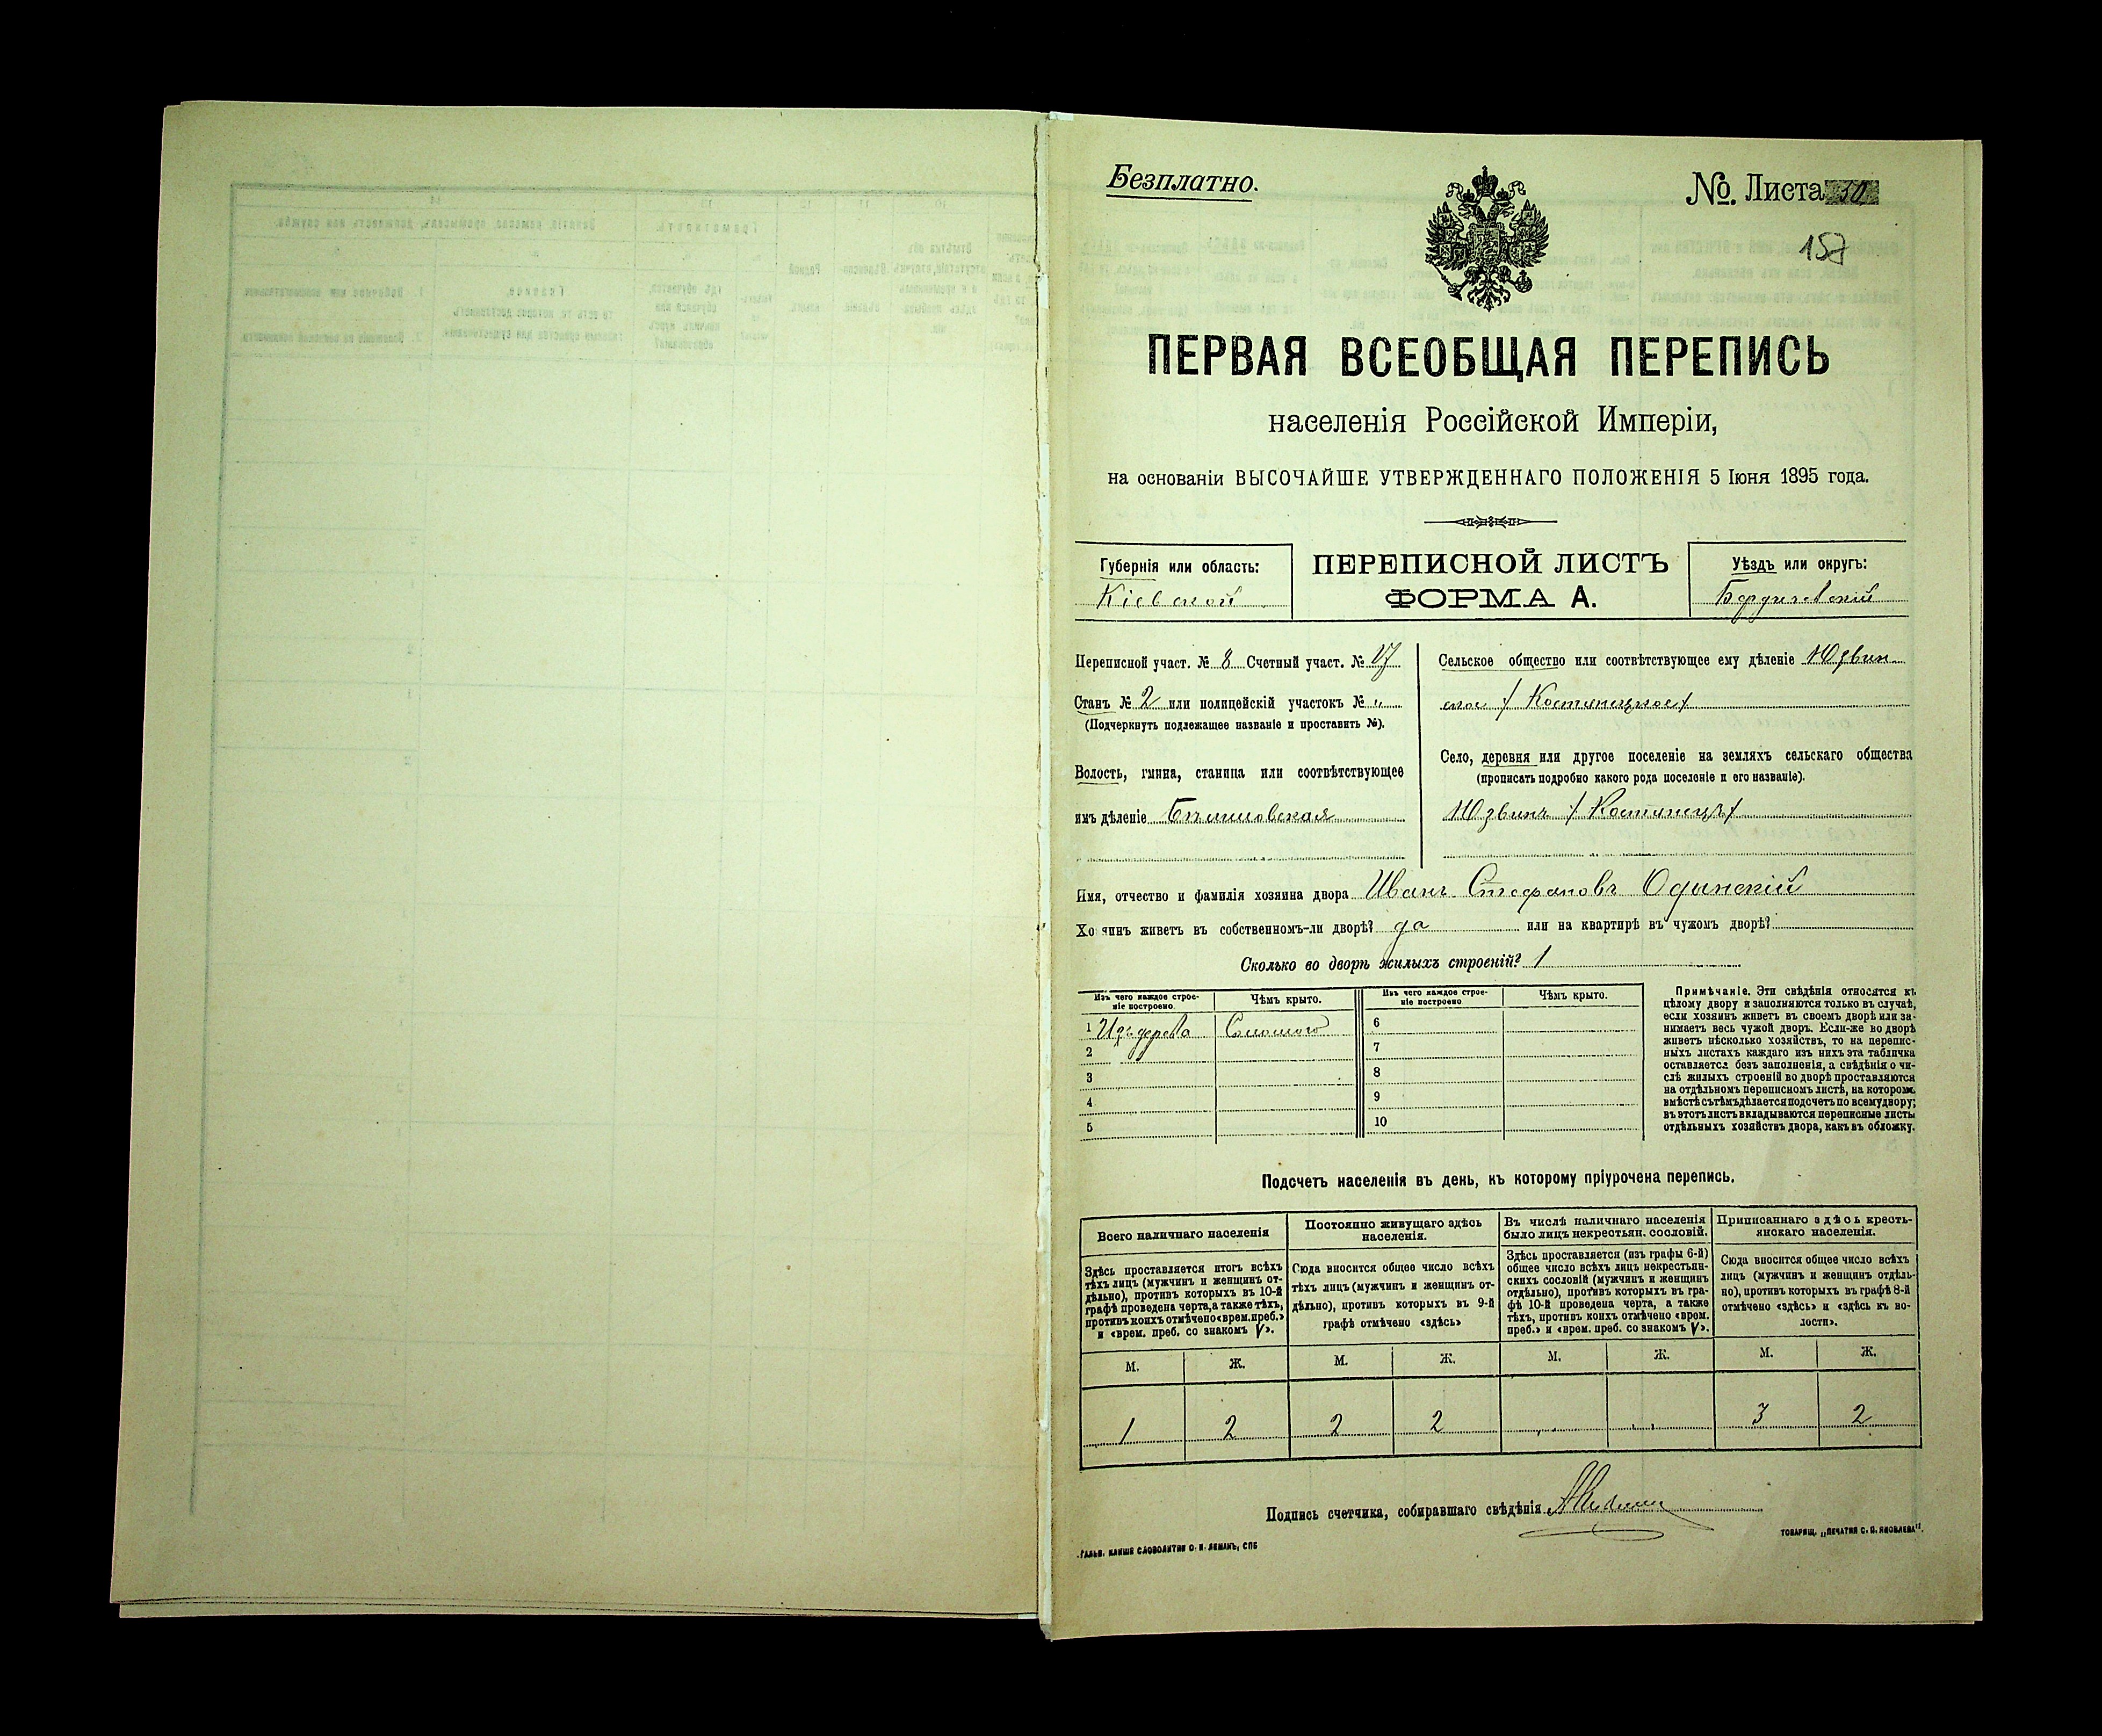 Безплатно.
№. Листа 50
157
ПЕРВАЯ ВСЕОБЩАЯ ПЕРЕПИСЬ
населенія Россійской Имперіи,
на основаніи ВЫСОЧАЙШЕ УТВЕРЖДЕННАГО ПОЛОЖЕНІЯ 5 Іюня 1895 года.
Губернія или область:
Кіевской
ПЕРЕПИСНОЙ ЛИСТЪ
ФОРМА А.
Уѣздъ или округъ:
Бердичевскій
Переписной участ. № 8 Счетный участ. № 17
Станъ № 2 или полицейскій участокъ № „
(Подчеркнуть подлежащее названіе и проставить №).
Волость, гмина, станица или соотвѣтствующее
имъ дѣленіе
Сельское общество или соотвѣтствующее ему дѣленіе Юзвин
ское / Костянецкое /
Село, деревня или другое поселеніе на земляхъ сельскаго общества
(прописать подробно какого рода поселеніе и его названіе).
Юзвинъ / Костянецъ /
Имя, отчество и фамилія хозяина двора Иванъ Стефановъ Одинскій
Хозяинъ живетъ въ собственномъ-ли дворѣ? да или на квартирѣ въ чужомъ дворѣ?
Сколько во дворѣ жилыхъ строеній? 1
Изъ чего каждое строе-
ніе построено.
Чѣмъ крыто.
Изъ чего каждое строе-
ніе построено
Чѣмъ крыто.
1 Изъ дерева Соломою 6
2 7
3 8
4 9
5 10
Примѣчаніе. Эти свѣдѣнія относятся къ
цѣлому двору и заполняются только въ случаѣ,
если хозяинъ живетъ въ своемъ дворѣ или за-
нимаетъ весь чужой дворъ. Если-же во дворѣ
живетъ нѣсколько хозяйствъ, то на перепис-
ныхъ листахъ каждаго изъ нихъ эта табличка
оставляется безъ заполненія, а свѣдѣнія о чи-
слѣ жилыхъ строеній во дворѣ проставляются
на отдѣльномъ переписномъ листѣ, на которомъ
вмѣстѣ съ тѣмъ дѣлается подсчетъ по всему двору;
въ этотъ листъ вкладываются переписные листы
отдѣльныхъ хозяйствъ двора, какъ въ обложку.
Подсчетъ населенія въ день, къ которому пріурочена перепись.
Всего наличнаго населенія
Здѣсь проставляется итогъ всѣхъ
тѣхъ лицъ (мужчинъ и женщинъ от-
дѣльно), противъ которыхъ въ 10-й
графѣ проведена черта, а также тѣхъ,
противъ коихъ отмѣчено «врем. преб.»
и «врем. преб. со знакомъ V».
Постоянно живущаго здѣсь
населенія.
Сюда вносится общее число всѣхъ
тѣхъ лицъ (мужчинъ и женщинъ от-
дѣльно), противъ которыхъ въ 9-й
графѣ отмѣчено «здѣсь»
Въ числѣ наличнаго населенія
было лицъ некрестьян. сословій.
Здѣсь проставляется (изъ графы 6-й)
общее число всѣхъ лицъ некрестьян-
скихъ сословій (мужчинъ и женщинъ
отдѣльно), противъ которыхъ въ гра-
фѣ 10-й проведена черта, а также
тѣхъ, противъ коихъ отмѣчено «врем.
преб.» и «врем. преб. со знакомъ V».
Приписаннаго здѣсь кресть-
янскаго населенія.
Сюда вносится общее число всѣхъ
лицъ (мужчинъ и женщинъ отдѣль-
но), противъ которыхъ въ графѣ 8-й
отмѣчено «здѣсь» и «здѣсь къ во-
лости».
М. Ж. М. Ж. М. Ж. М. Ж.
1 2 2 2 „ „ 3 2
Подпись счетчика, собиравшаго свѣдѣнія
Гальв. клише словолитни О. И. Леманъ, СПБ
Товарищ. „Печатня С. П. Яковлева".